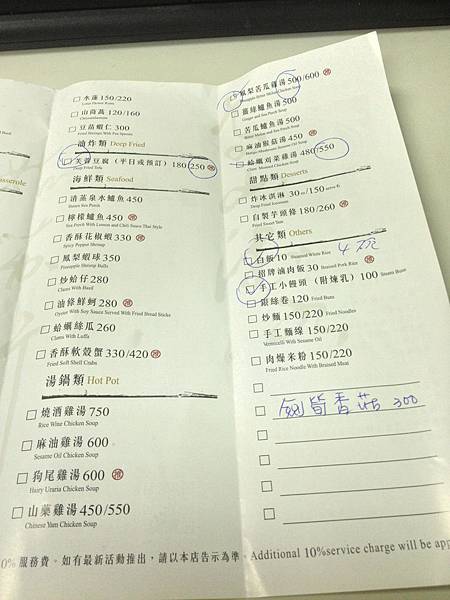 水蓮 150/220
Lotus Flower Root
山蘇 120/160
豆苗蝦仁 300
Fried Shrimps With Pea Sprouts
油炸類 Deep Fried
芙蓉豆腐 (平日或預訂) 180/250 推
Deep Fried Tofu
海鮮類 Seafood
清蒸泉水鱸魚 450
Steam Sea Perch
檸檬鱸魚 450 推
Sea Perch With Lemon and Chili Sauce Thai Style
香酥花椒蝦 330 推
Spicy Pepper Shrimp
鳳梨蝦球 350
Pineapple Shrimp Balls
炒蛤仔 280
Clams With Basil
油條鮮蚵 280 推
Oyster With Soy Sauce Served With Fried Bread Sticks
蛤蠣絲瓜 260
Clams With Luffa
香酥軟殼蟹 330/420 推
Fried Soft Shell Crabs
湯鍋類 Hot Pot
燒酒雞湯 750
Rice Wine Chicken Soup
麻油雞湯 600
Sesame Oil Chicken Soup
狗尾雞湯 600 推
Hairy Uraria Chicken Soup
山藥雞湯 450/550
Chinese Yam Chicken Soup
鳳梨苦瓜雞湯 500/600 推
Pineapple Bitter Melon Chicken Soup
薑絲鱸魚湯 500
Ginger and Sea Perch Soup
苦瓜鱸魚湯 500
Bitter Melon and Sea Perch Soup
麻油猴菇湯 450
蛤蠣刈菜雞湯 480/550
Clams Mustard Chicken Soup
甜點類 Desserts
炸冰淇淋 30元/150
Deep Fried Icecream
自製芋頭條 180/260 推
Fried Sweet Taro
其它類 Others
白飯 10 Steamed White Rice
4碗
招牌滷肉飯 30 Braised Pork Rice 推
手工小饅頭 (附煉乳) 100 Steam Buns
銀絲卷 120 Fried Buns
炒麵 150/220 Fried Noodles
手工麵線 150/220
Vermicelli With Sesame Oil
肉燥米粉 150/220
Fried Rice Noodle With Braised Meat
香菇 300
0% 服務費。如有最新活動推出，請以本店告示為準。Additional 10%service charge will be app